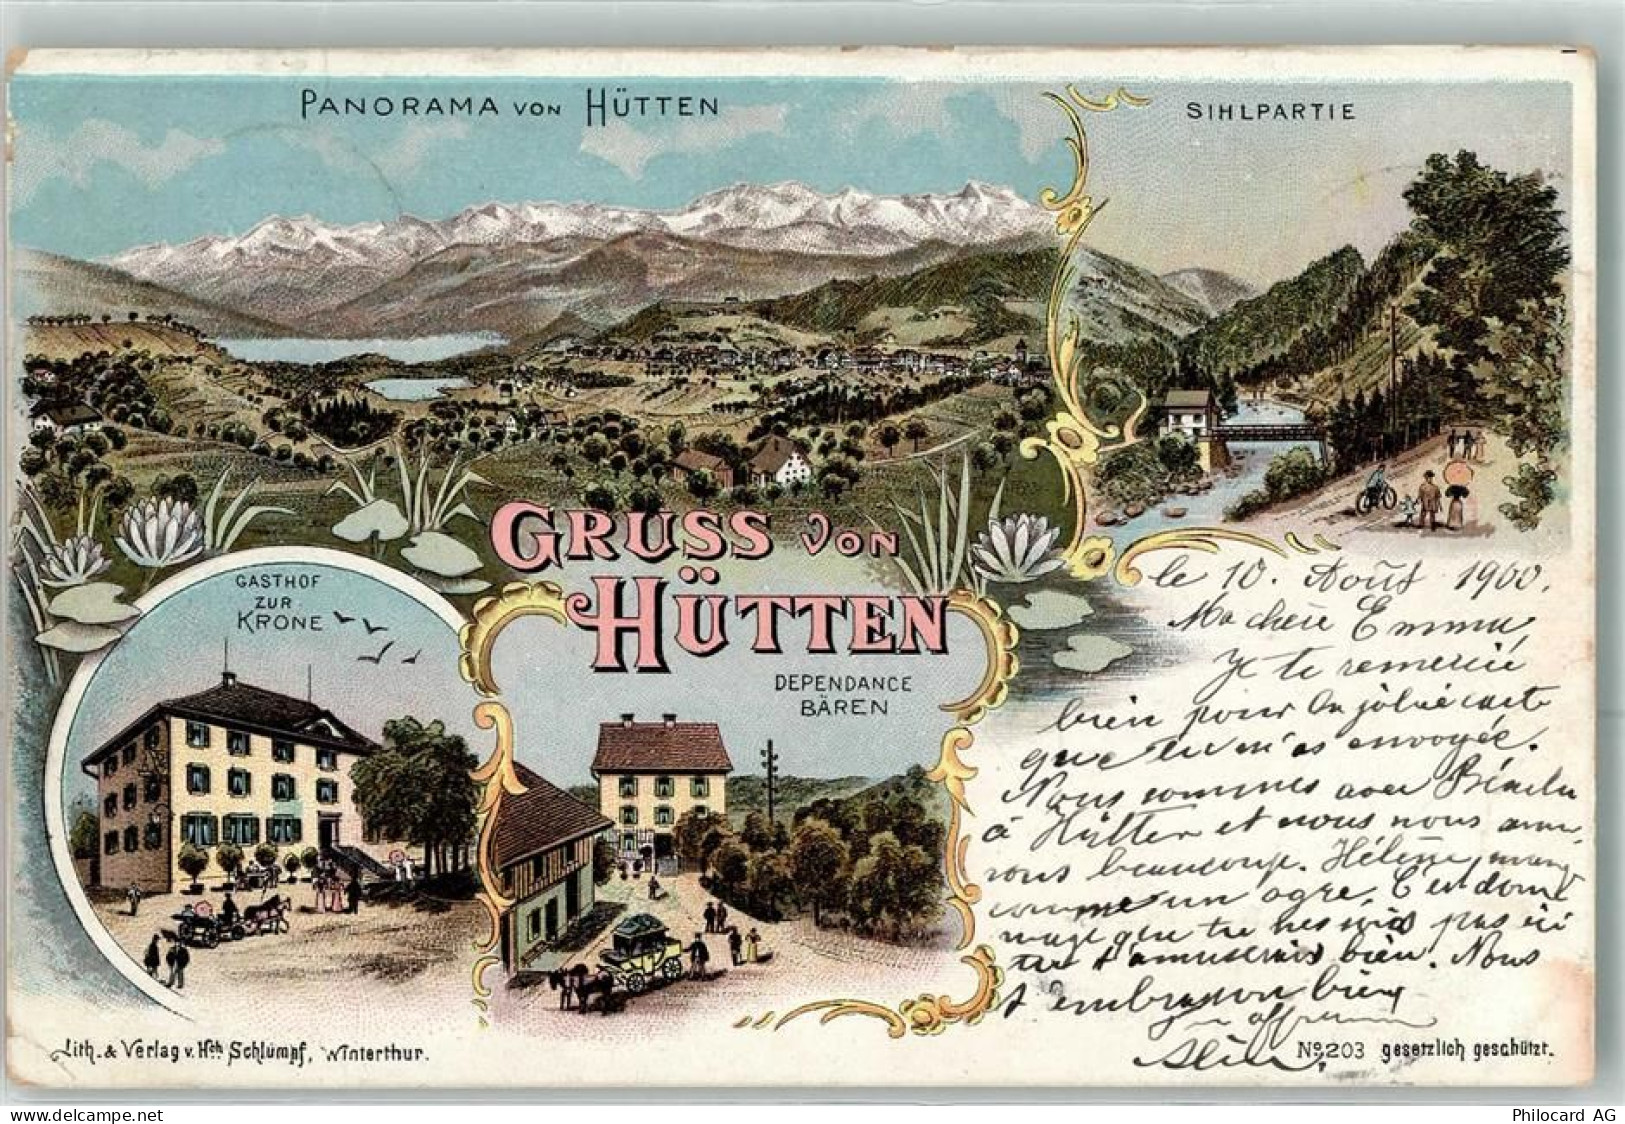 PANORAMA VON HÜTTEN
SIHLPARTIE
GRUSS VON
HÜTTEN
GASTHOF
ZUR
KRONE
DEPENDANCE
BÄREN
le 10. Août 1900.
Ma chère Emma,
Je te remercie
bien pour la jolie carte
que tu m'as envoyée.
Nous sommes avec
à Hütten et nous nous amu
sons beaucoup. Hélène mange
comme un ogre, C'est dom
mage que tu ne sois pas ici
tu t'amuserais bien. Nous
t'embrassons bien
Lith. & Verlag v. Hch. Schlumpf, Winterthur.
No. 203 gesetzlich geschützt.
delcampe.net
Philocard AG